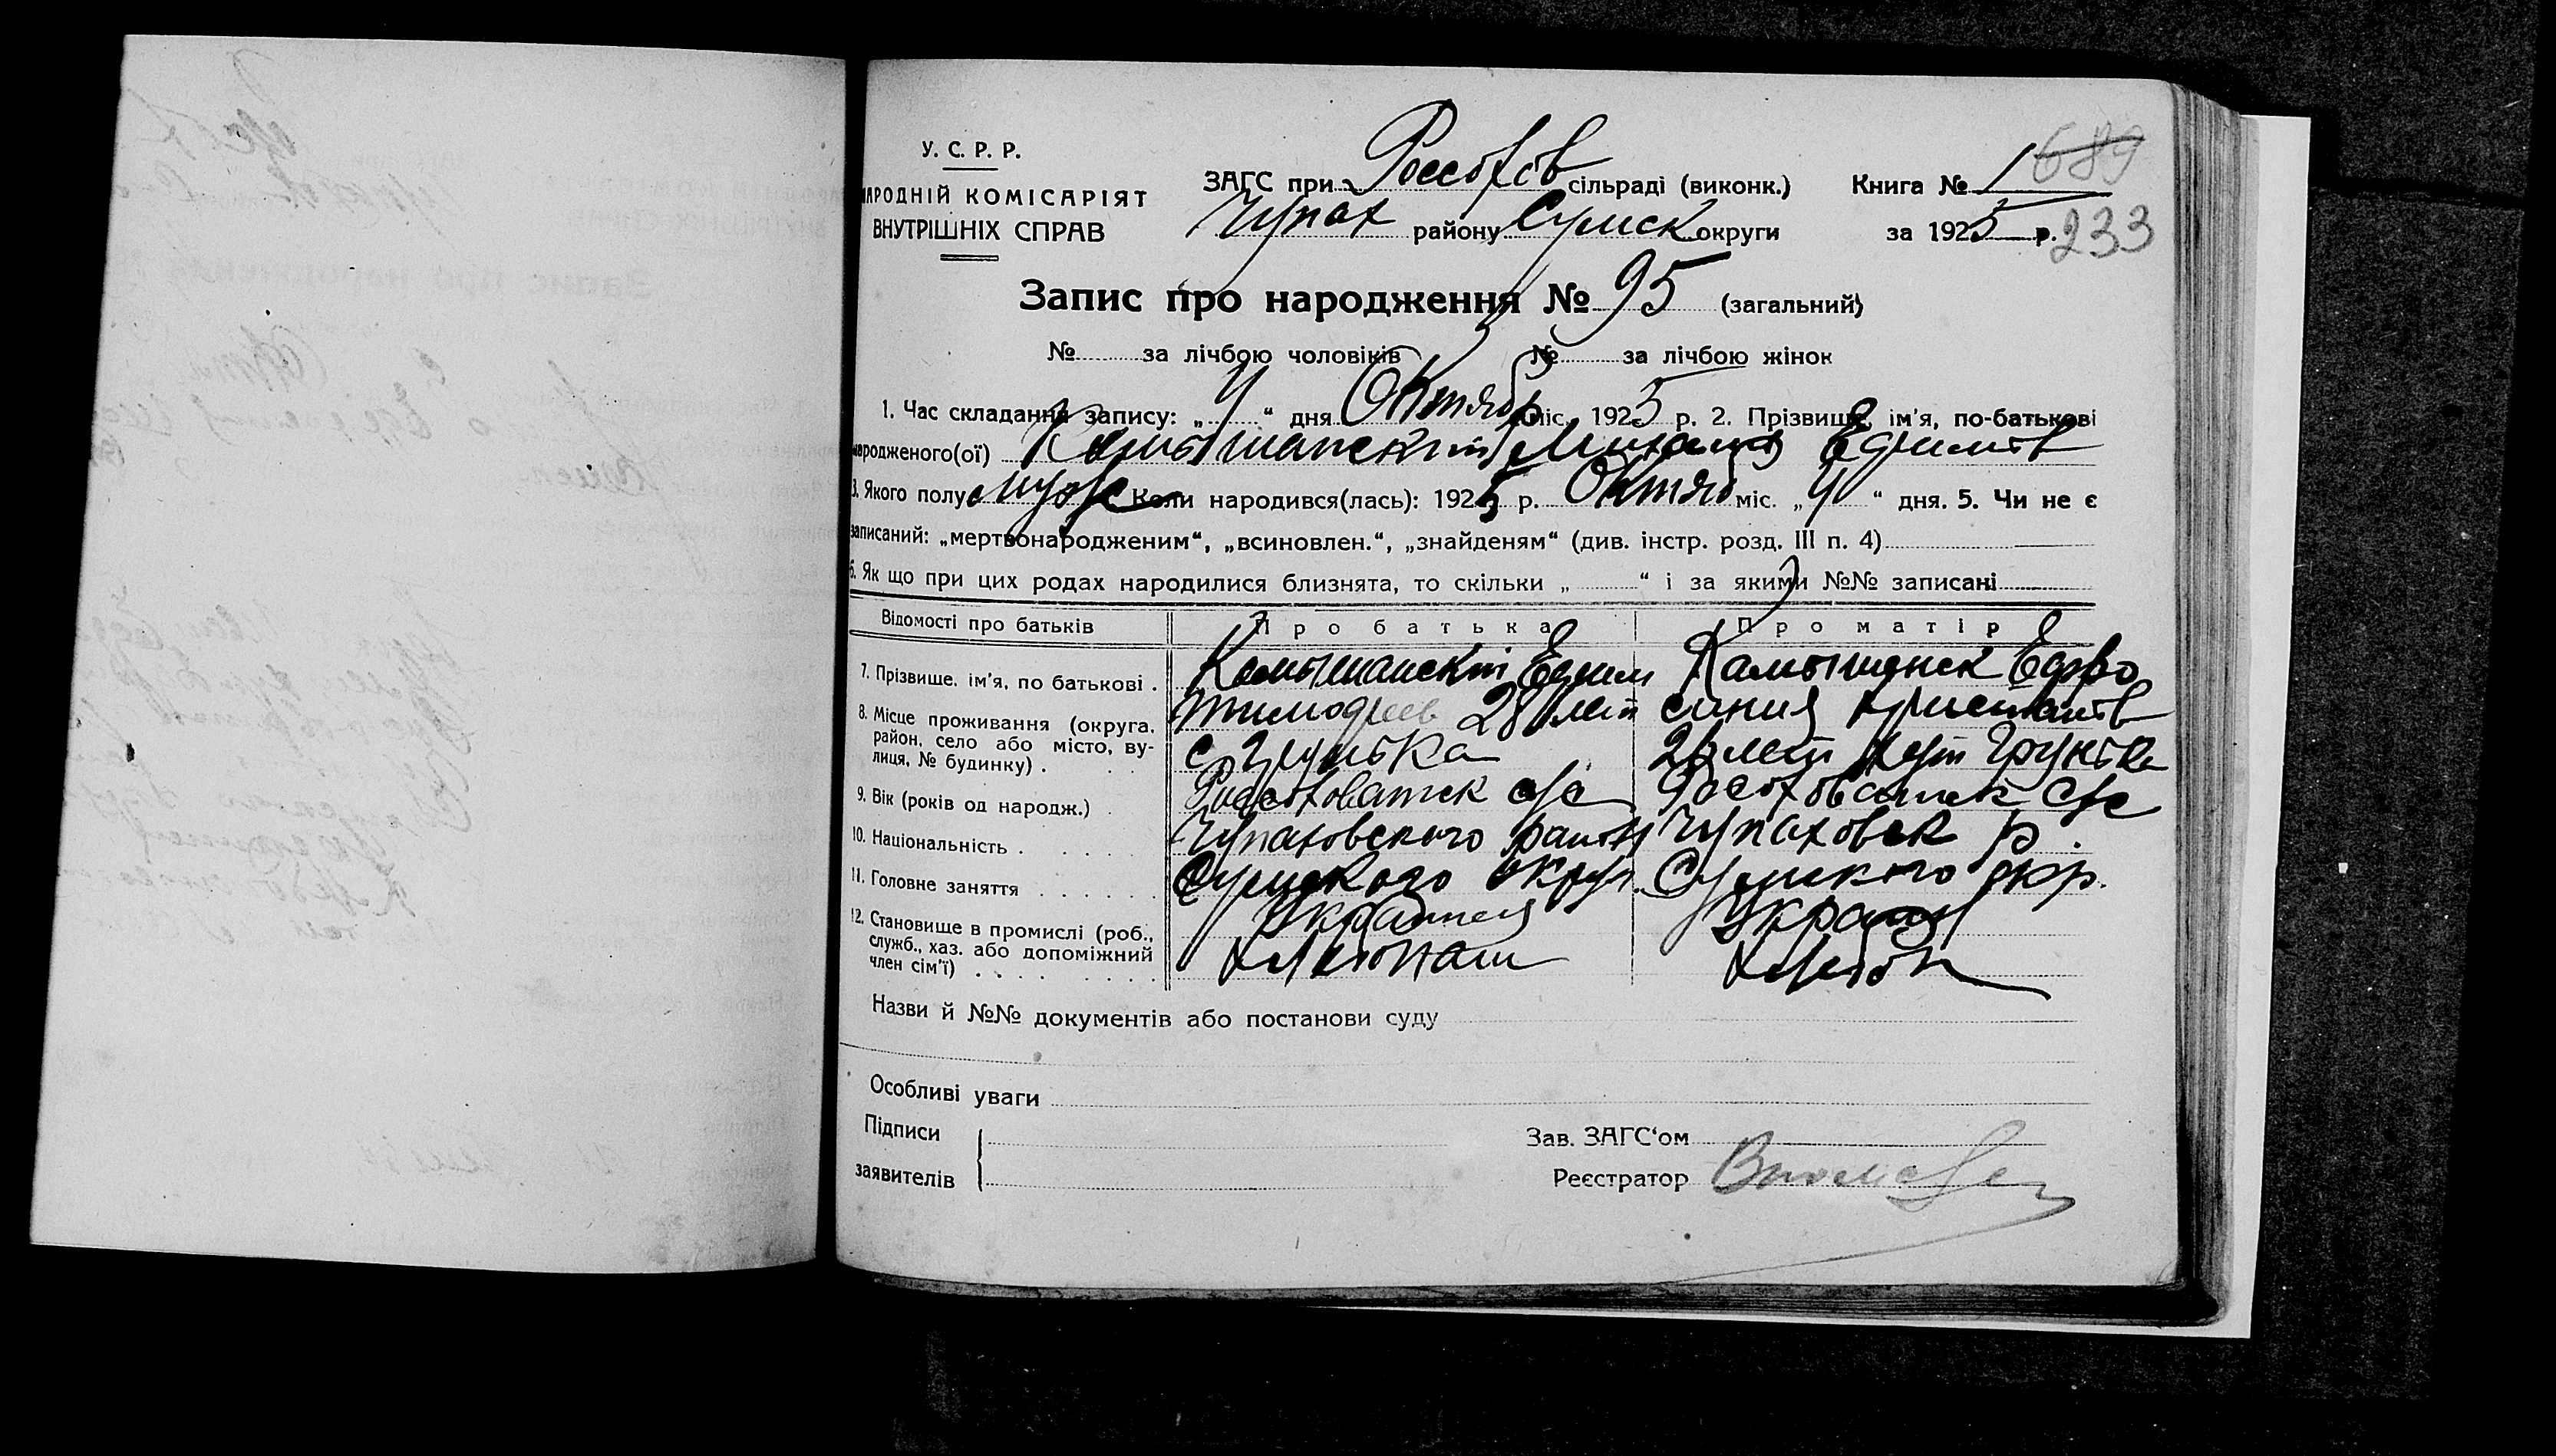 У. С. Р. Р.
НАРОДНІЙ КОМІСАРІЯТ
ВНУТРІШНІХ СПРАВ
ЗАГС при Россохов сільраді (виконк.)
Чупах району Сумск округи
Книга № 1
689
за 1925 р.
233
Запис про народження № 95 (загальний)
№ за лічбою чоловіків № за лічбою жінок
1. Час складання запису: „ “ дня Октябр міс. 1925 р. 2. Прізвище, ім'я, по-батькові
народженого(ої) Камышанский Михаил Ефимов
3. Якого полу муж Коли народився(лась): 1925 р. Октяб міс. „ “ дня. 5. Чи не є
записаний: „мертвонародженим“, „всиновлен.“, „знайденям“ (див. інстр. розд. III п. 4)
6. Як що при цих родах народилися близнята, то скільки „ “ і за якими №№ записані
Відомості про батьків Про батька Про матір
7. Прізвище, ім'я, по батькові .
8. Місце проживання (округа, район, село або місто, вулиця, № будинку) .
9. Вік (років од народж.) .
10. Національність .
11. Головне заняття
12. Становище в промислі (роб., служб., хаз. або допоміжний член сім'ї)
Камышанский Ефим
Тимофеев 28 лет
с Грунька
Россоховатск с/с
Чупаховского район
Сумского округ.
Украинец
хлебопаш
Камышанск Ефро
синия
26 лет хут Грунька
Россоховатск с/с
Чупаховск р.
Сумского окр.
Украин
хлебоп
Назви й №№ документів або постанови суду
Особливі уваги
Підписи
заявителів
Зав. ЗАГС‘ом
Реєстратор